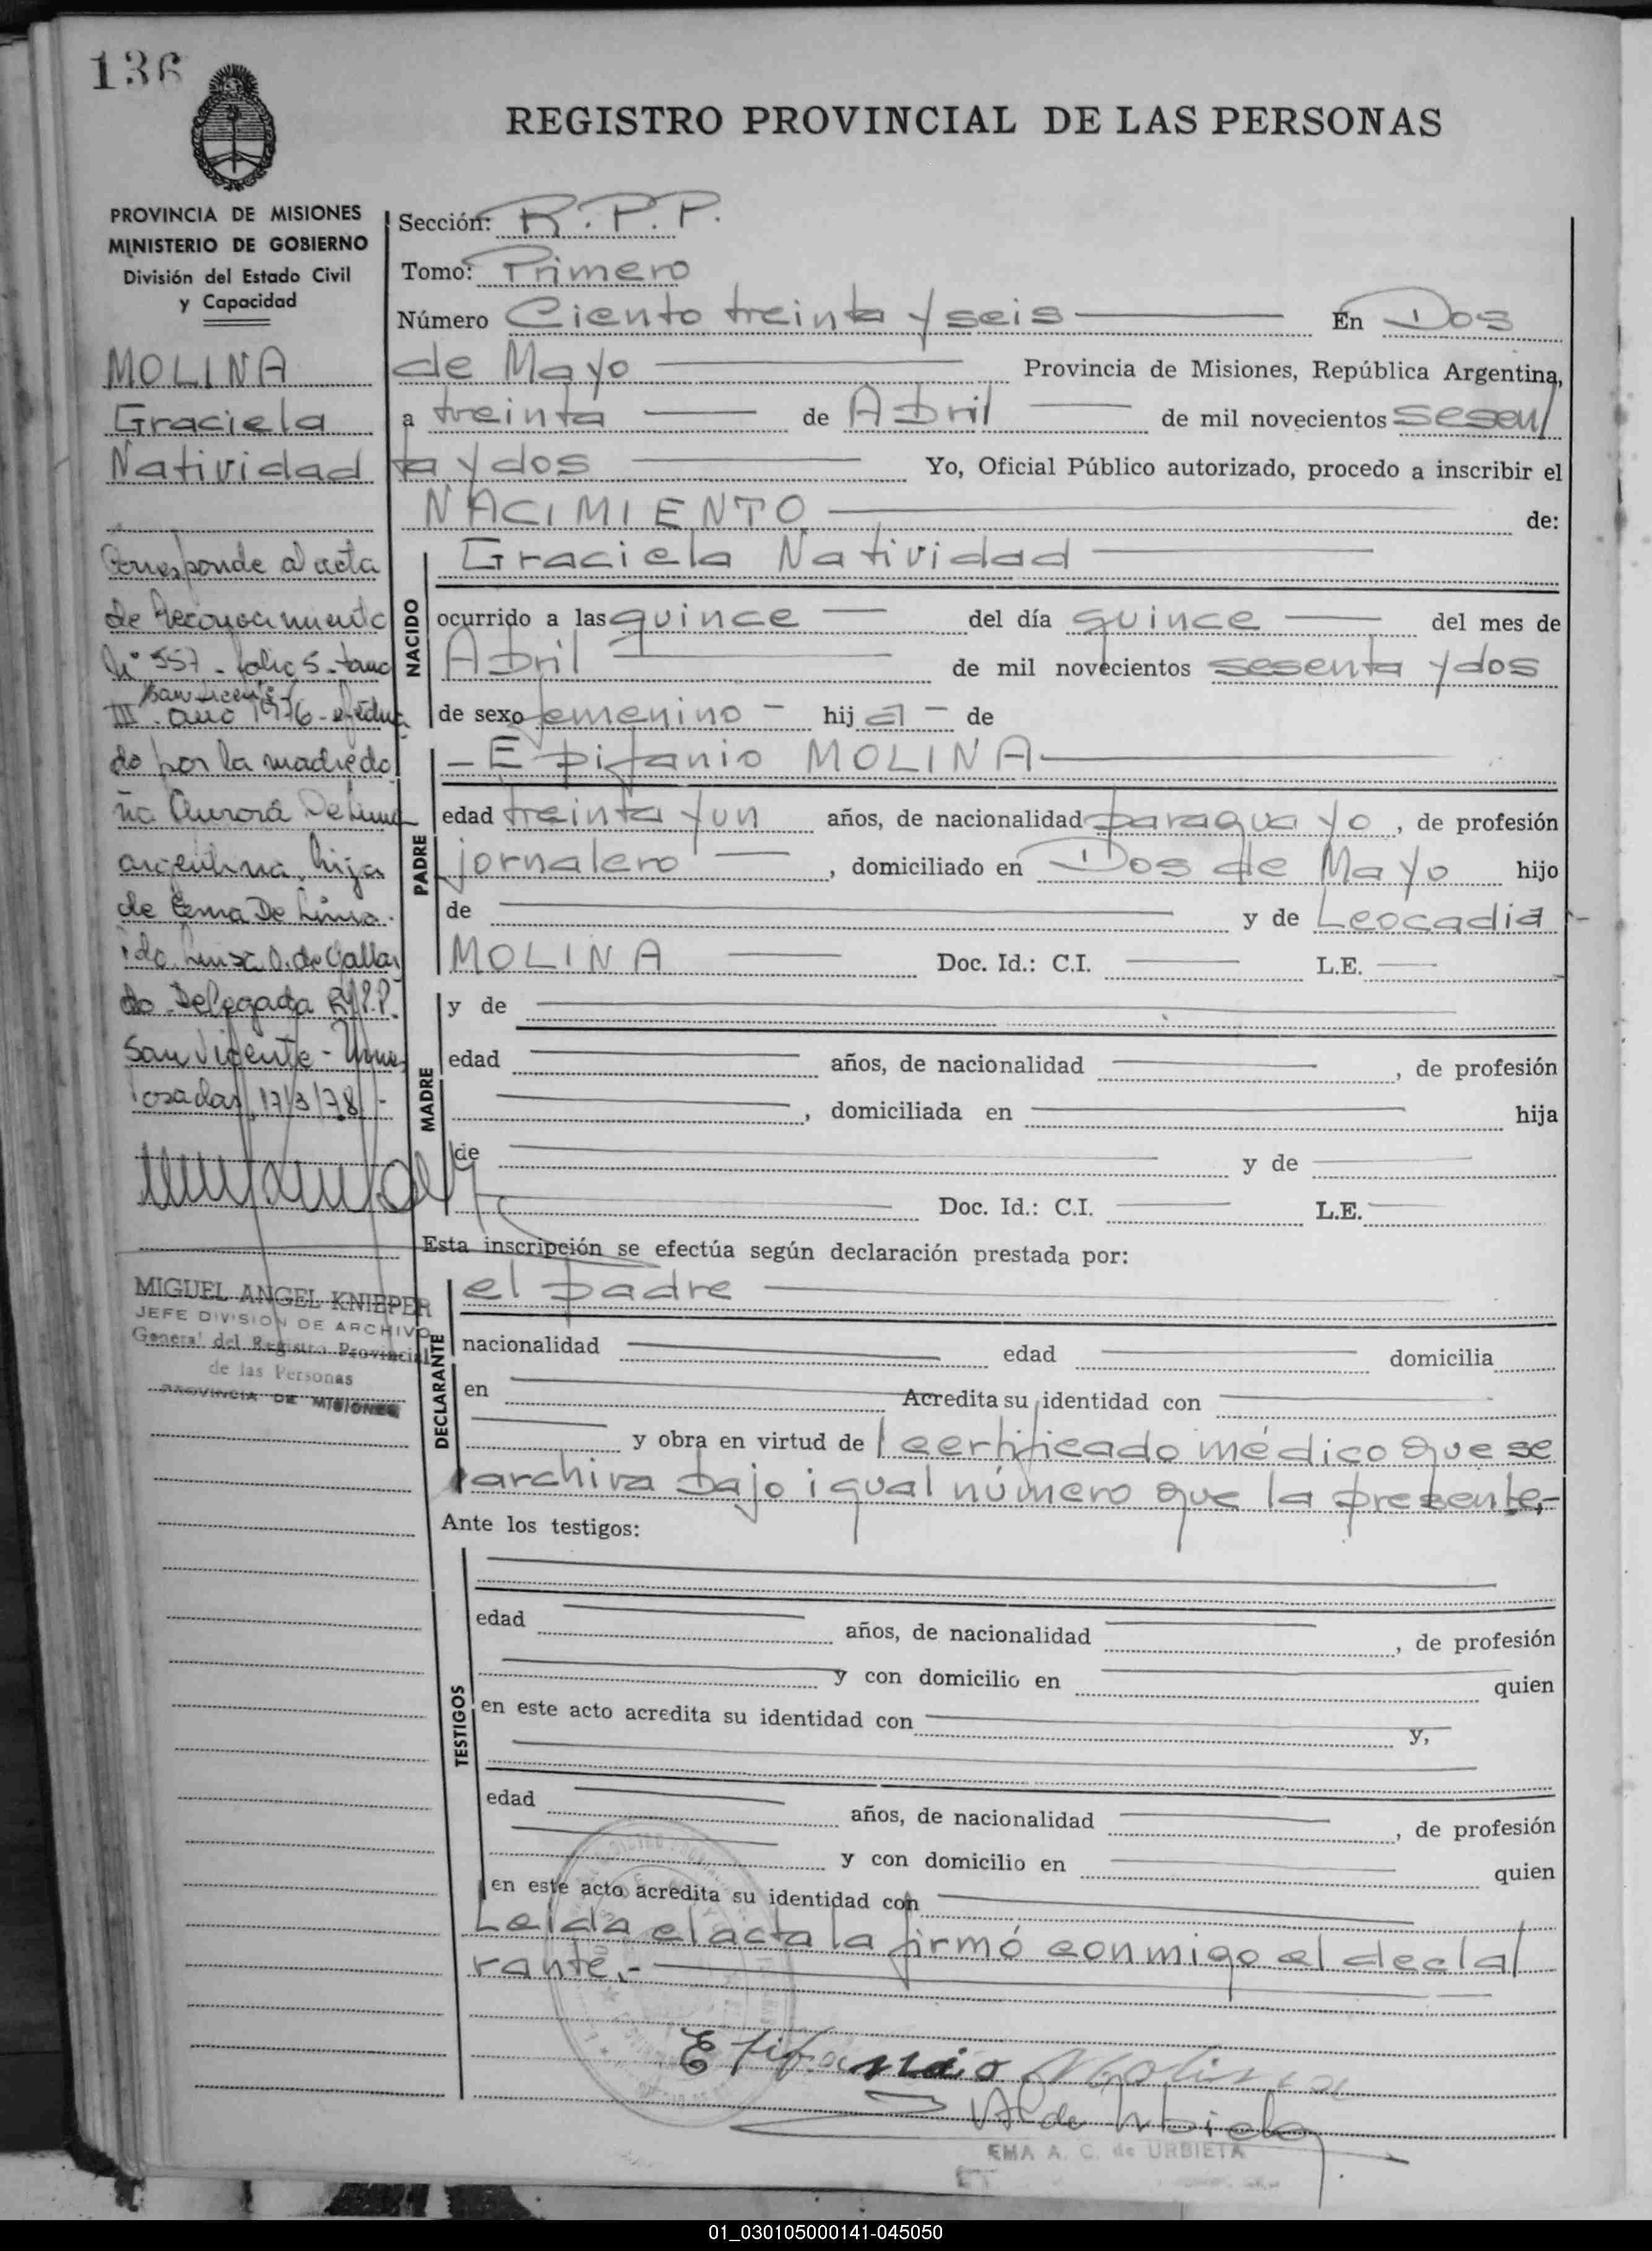 136
REGISTRO PROVINCIAL DE LAS PERSONAS
PROVINCIA DE MISIONES
MINISTERIO DE GOBIERNO
División del Estado Civil
y Capacidad
MOLINA
Graciela
Natividad
Corresponde al acta
de Reconocimiento
Nº 557 - folio 5 - tomo
San Vicente
III - año 1976 - efectua
do por la madre do
ña Aurora De Lima
argentina, hija
de Ema De Lima.
Fdo. Luisa O. de Galla
do. Delegada R.P.P.
San Vicente - Mnes
Posadas, 17/3/78 -
MIGUEL ANGEL KNIEPER
JEFE DIVISION DE ARCHIVO
General del Registro Provincial
de las Personas
PROVINCIA DE MISIONES
Sección: R.P.P.
Tomo: Primero
Número Ciento treinta y seis En Dos
de Mayo Provincia de Misiones, República Argentina,
a treinta de Abril de mil novecientos sesen/
ta y dos Yo, Oficial Público autorizado, procedo a inscribir el
NACIMIENTO de:
NACIDO
Graciela Natividad
ocurrido a las quince del día quince del mes de
Abril de mil novecientos sesenta y dos
de sexo femenino - hij a - de
PADRE
- Epifanio MOLINA
edad treinta y un años, de nacionalidad paraguayo, de profesión
jornalero, domiciliado en Dos de Mayo hijo
de y de Leocadia
MOLINA Doc. Id.: C.I. L.E.
MADRE
y de
edad años, de nacionalidad , de profesión
, domiciliada en hija
de y de
Doc. Id.: C.I. L.E.
Esta inscripción se efectúa según declaración prestada por:
DECLARANTE
el padre
nacionalidad edad domicilia
en Acredita su identidad con
y obra en virtud de / certificado médico que se
/ archiva bajo igual número que la presente.-
Ante los testigos:
TESTIGOS
edad años, de nacionalidad , de profesión
y con domicilio en quien
en este acto acredita su identidad con y,
edad años, de nacionalidad , de profesión
y con domicilio en quien
en este acto acredita su identidad con
Leída el acta la firmó conmigo el decla/
rante.-
Epifanio Molina
A de Urbieta
EMA A. C. de URBIETA
01_030105000141-045050